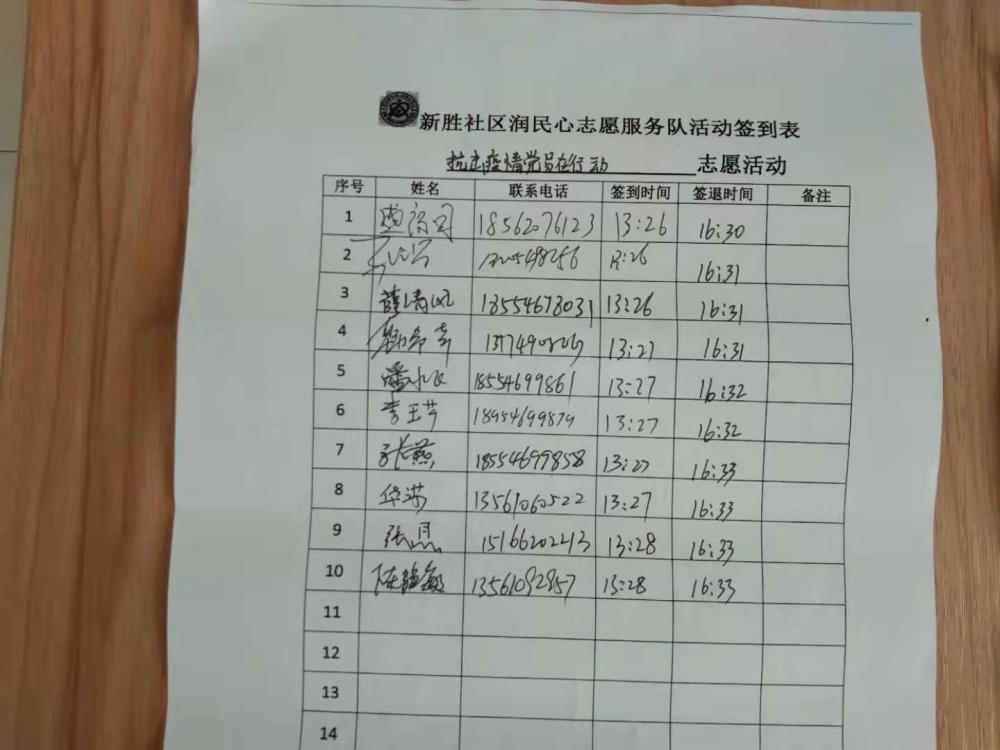 新胜社区润民心志愿服务队活动签到表
抗击疫情党员在行动 志愿活动
序号 姓名 联系电话 签到时间 签退时间 备注
1 18562076123 13:26 16:30
2 13:26 16:31
3 薛清风 18554678031 13:26 16:31
4 13:27 16:31
5 18554699861 13:27 16:32
6 李玉芳 18954699879 13:27 16:32
7 张燕 18554699858 13:27 16:33
8 华满 13561060522 13:27 16:33
9 张恩 15166202213 13:28 16:33
10 13561092857 13:28 16:33
11
12
13
14